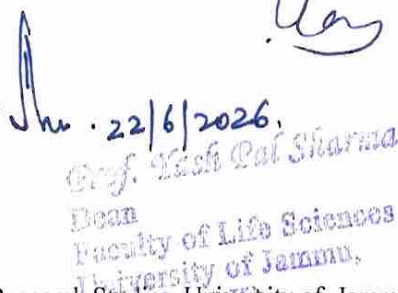 22/6/2026.
Prof. Yash Pal Sharma
Dean
Faculty of Life Sciences
University of Jammu,
Research Studies, University of Jammu